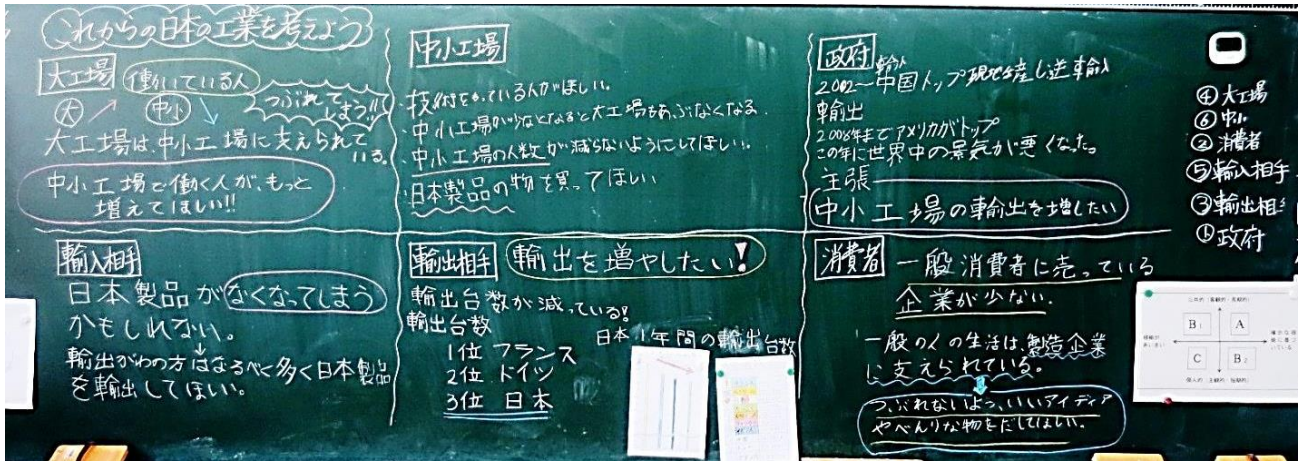 これからの日本の工業を考えよう
大工場 働いている人
大 中小 つぶれてしまう!!
大工場は中小工場に支えられている。
中小工場で働く人が、もっと
増えてほしい!!
中小工場
・技術をもっている人がほしい。
・中小工場が少なくなると大工場もあぶなくなる
・中小工場の人数が減らないようにしてほしい。
・日本製品の物を買ってほしい
政府
輸入
2002〜中国トップ現地生産し逆輸入
輸出
2008年までアメリカがトップ
この年に世界中の景気が悪くなった。
主張
中小工場の輸出を増したい
④大工場
⑥中小
②消費者
⑤輸入相手
③輸出相手
①政府
輸入相手
日本製品がなくなってしまう
かもしれない。
輸出がわの方はなるべく多く日本製品
を輸出してほしい。
輸出相手 輸出を増やしたい!
輸出台数が減っている!
輸出台数
1位 フランス
2位 ドイツ
3位 日本
日本 年間の輸出台数
消費者 一般消費者に売っている
企業が少ない.
一般の人の生活は製造企業
に支えられている。
つぶれないよう、いいアイディア
やべんりな物をだしてほしい。
B1 A
C B2